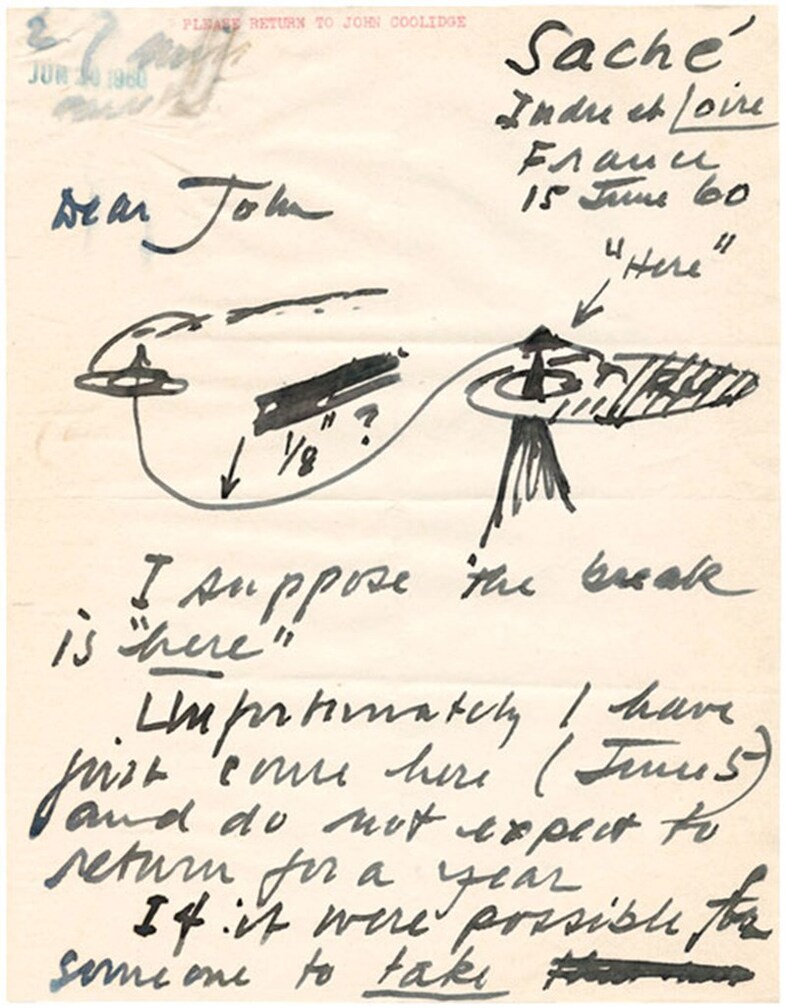 PLEASE RETURN TO JOHN COOLIDGE
JUN 30 1960
Saché
Indre et Loire
France
15 June 60
Dear John
"Here"
1/8" ?
I suppose the break
is "here"
Unfortunately I have
just come here (June 5)
and do not expect to
return for a year
If it were possible for
someone to take